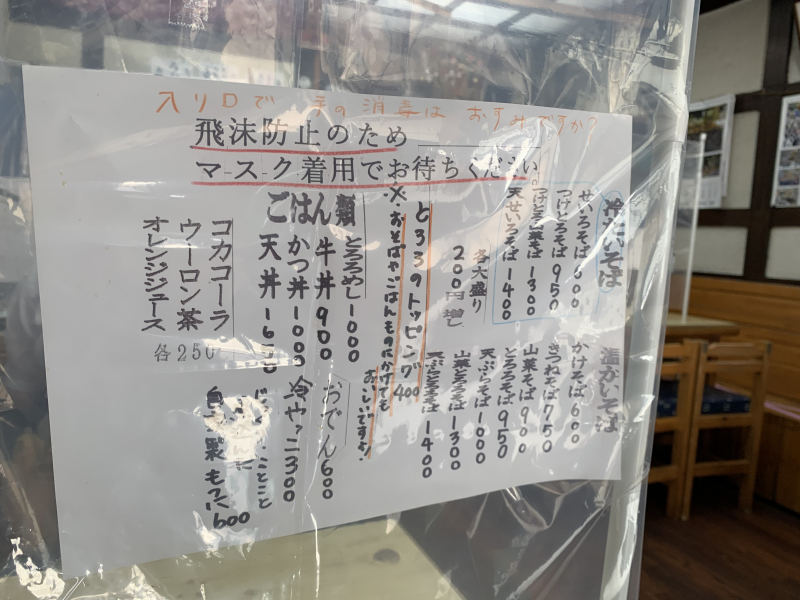 入り口で 手の消毒は おすみですか?
飛沫防止のため
マスク着用でお待ちください。
冷たいそば
せいろそば 600
つけとろそば 950
つけとろ山菜そば 1300
天せいろそば 1400
各大盛り
200円増し
温かいそば
かけそば 600
きつねそば 750
山菜そば 900
とろろそば 950
天ぷらそば 1000
山菜とろろそば 1300
天ぷらとろろそば 1400
とろろのトッピング 400
※おそばやごはんものにかけても
おいしいですよ!
ごはん類
とろろめし 1000
牛丼 900
かつ丼 1000
天丼 1650
おでん 600
冷やっこ 300
ことこと
もつに 600
コカコーラ
ウーロン茶
オレンジジュース
各250